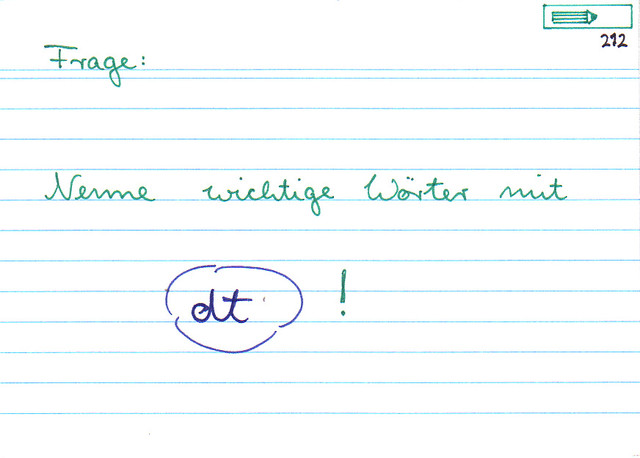 292
Frage:
Nenne wichtige Wörter mit
dt !